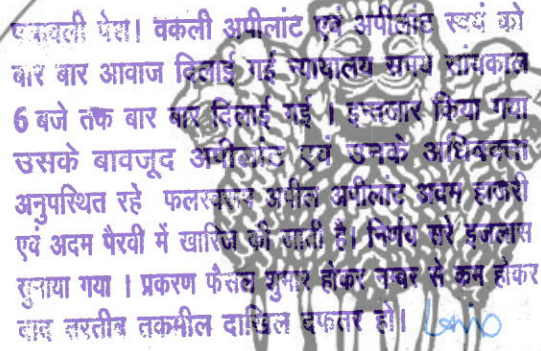 पत्रावली पेश। वकली अपीलांट एवं अपीलांट स्वयं को
बार बार आवाज दिलाई गई न्यायालय समय सांयकाल
6 बजे तक बार बार दिलाई गई । इन्तजार किया गया
उसके बावजूद अपीलांट एवं उनके अधिवक्ता
अनुपस्थित रहे फलस्वरूप अपील अपीलांट अदम हाजरी
एवं अदम पैरवी में खारिज की जाती है। निर्णय सरे इजलास
सुनाया गया । प्रकरण फैसल शुमार होकर नम्बर से कम होकर
बाद तरतीब तकमील दाखिल दफतर हो।